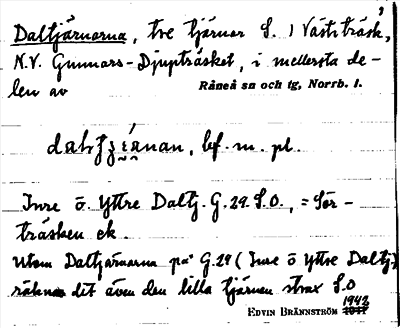 Daltjärnarna, tre tjärnar S. / Västiträsk,
N.V. Gunnars-Djupträsket, i mellersta de-
len av Råneå sn och tg, Norrb. l.
bf. m. pl.
Inre o. Yttre Daltj. G.29. S.O., = Sör-
träsken ek.
Utom Daltjärnarna på G.29 (Inre o Yttre Daltj)
räknas dit även den lilla tjärnen strax S.O
EDVIN BRÄNNSTRÖM 1942